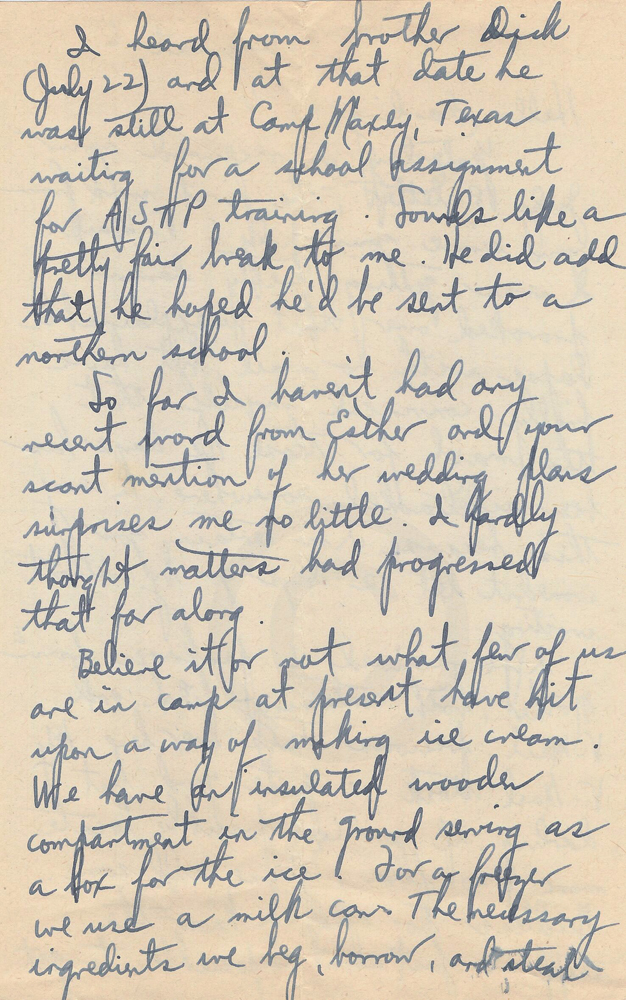 I heard from brother Dick
(July 22) and at that date he
was still at Camp Maxey, Texas
waiting for a school assignment
for ASTP training. Sounds like a
pretty fair break to me. He did add
that he hoped he'd be sent to a
northern school.
So far I haven't had any
recent word from Esther and your
scant mention of her wedding plans
surprises me no little. I hardly
thought matters had progressed
that far along.
Believe it or not what few of us
are in camp at present have hit
upon a way of making ice cream.
We have an insulated wooden
compartment in the ground serving as
a box for the ice. For a freezer
we use a milk can. The necessary
ingredients we beg, borrow, and steal